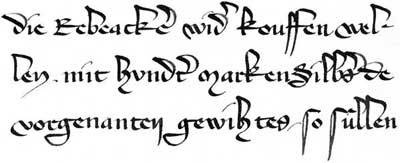 die Rebeackˀ widˀ kouffen wel-
len. mit hvndˀt marken Silbˀs de
vorgenanten gewihtes, so süllen